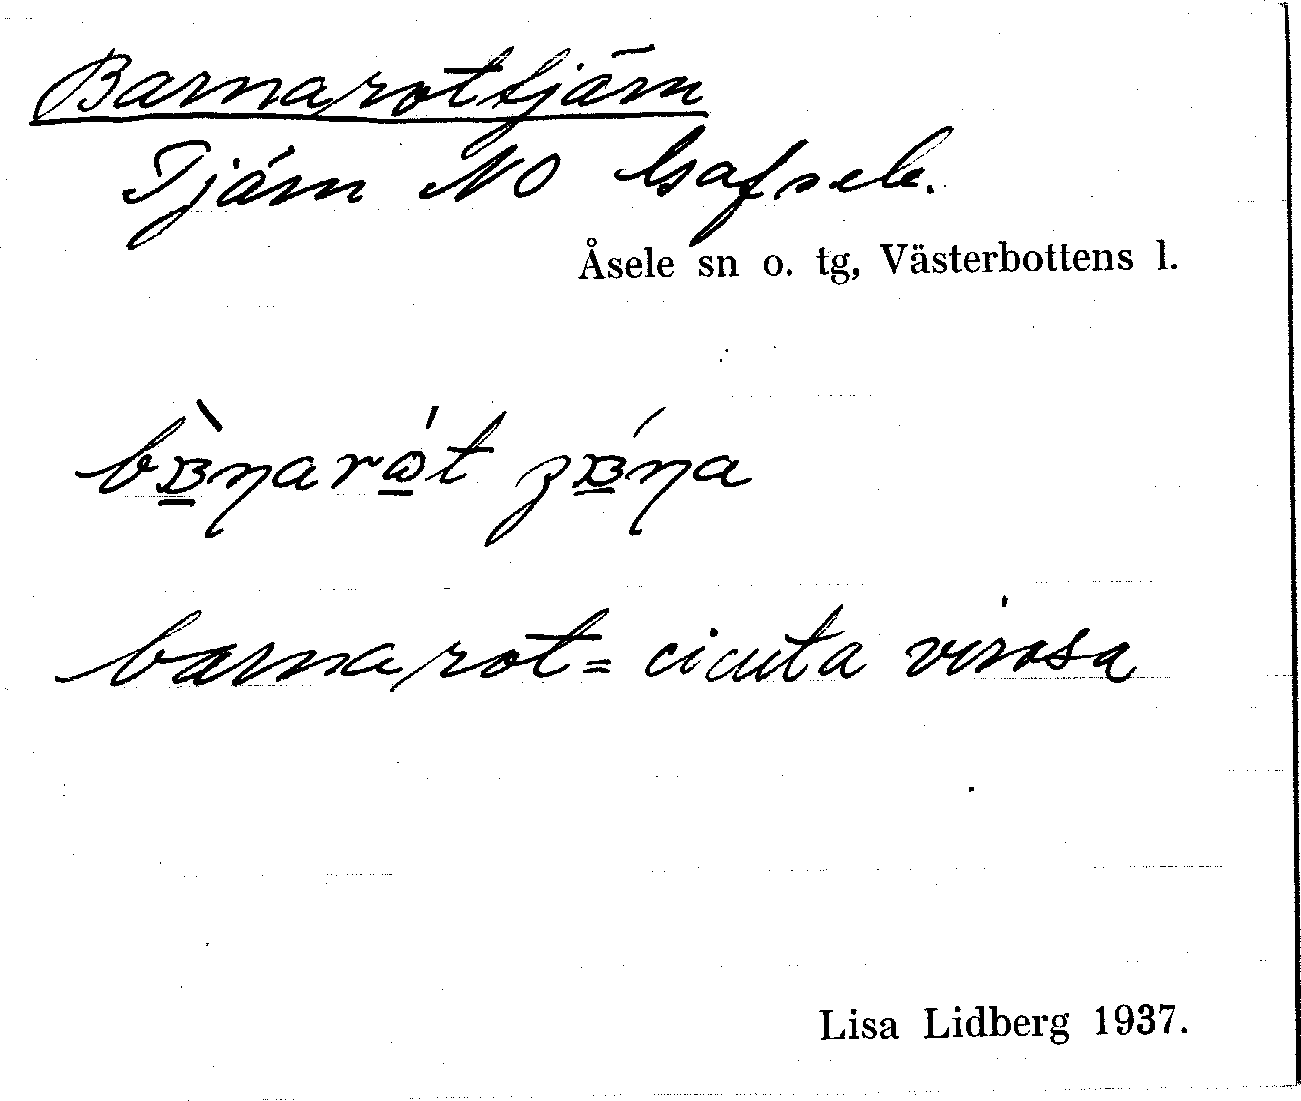 Barnarottjärn
Tjärn NO Gafsele.
Åsele sn o. tg, Västerbottens l.
barnarot = cicuta virosa
Lisa Lidberg 1937.